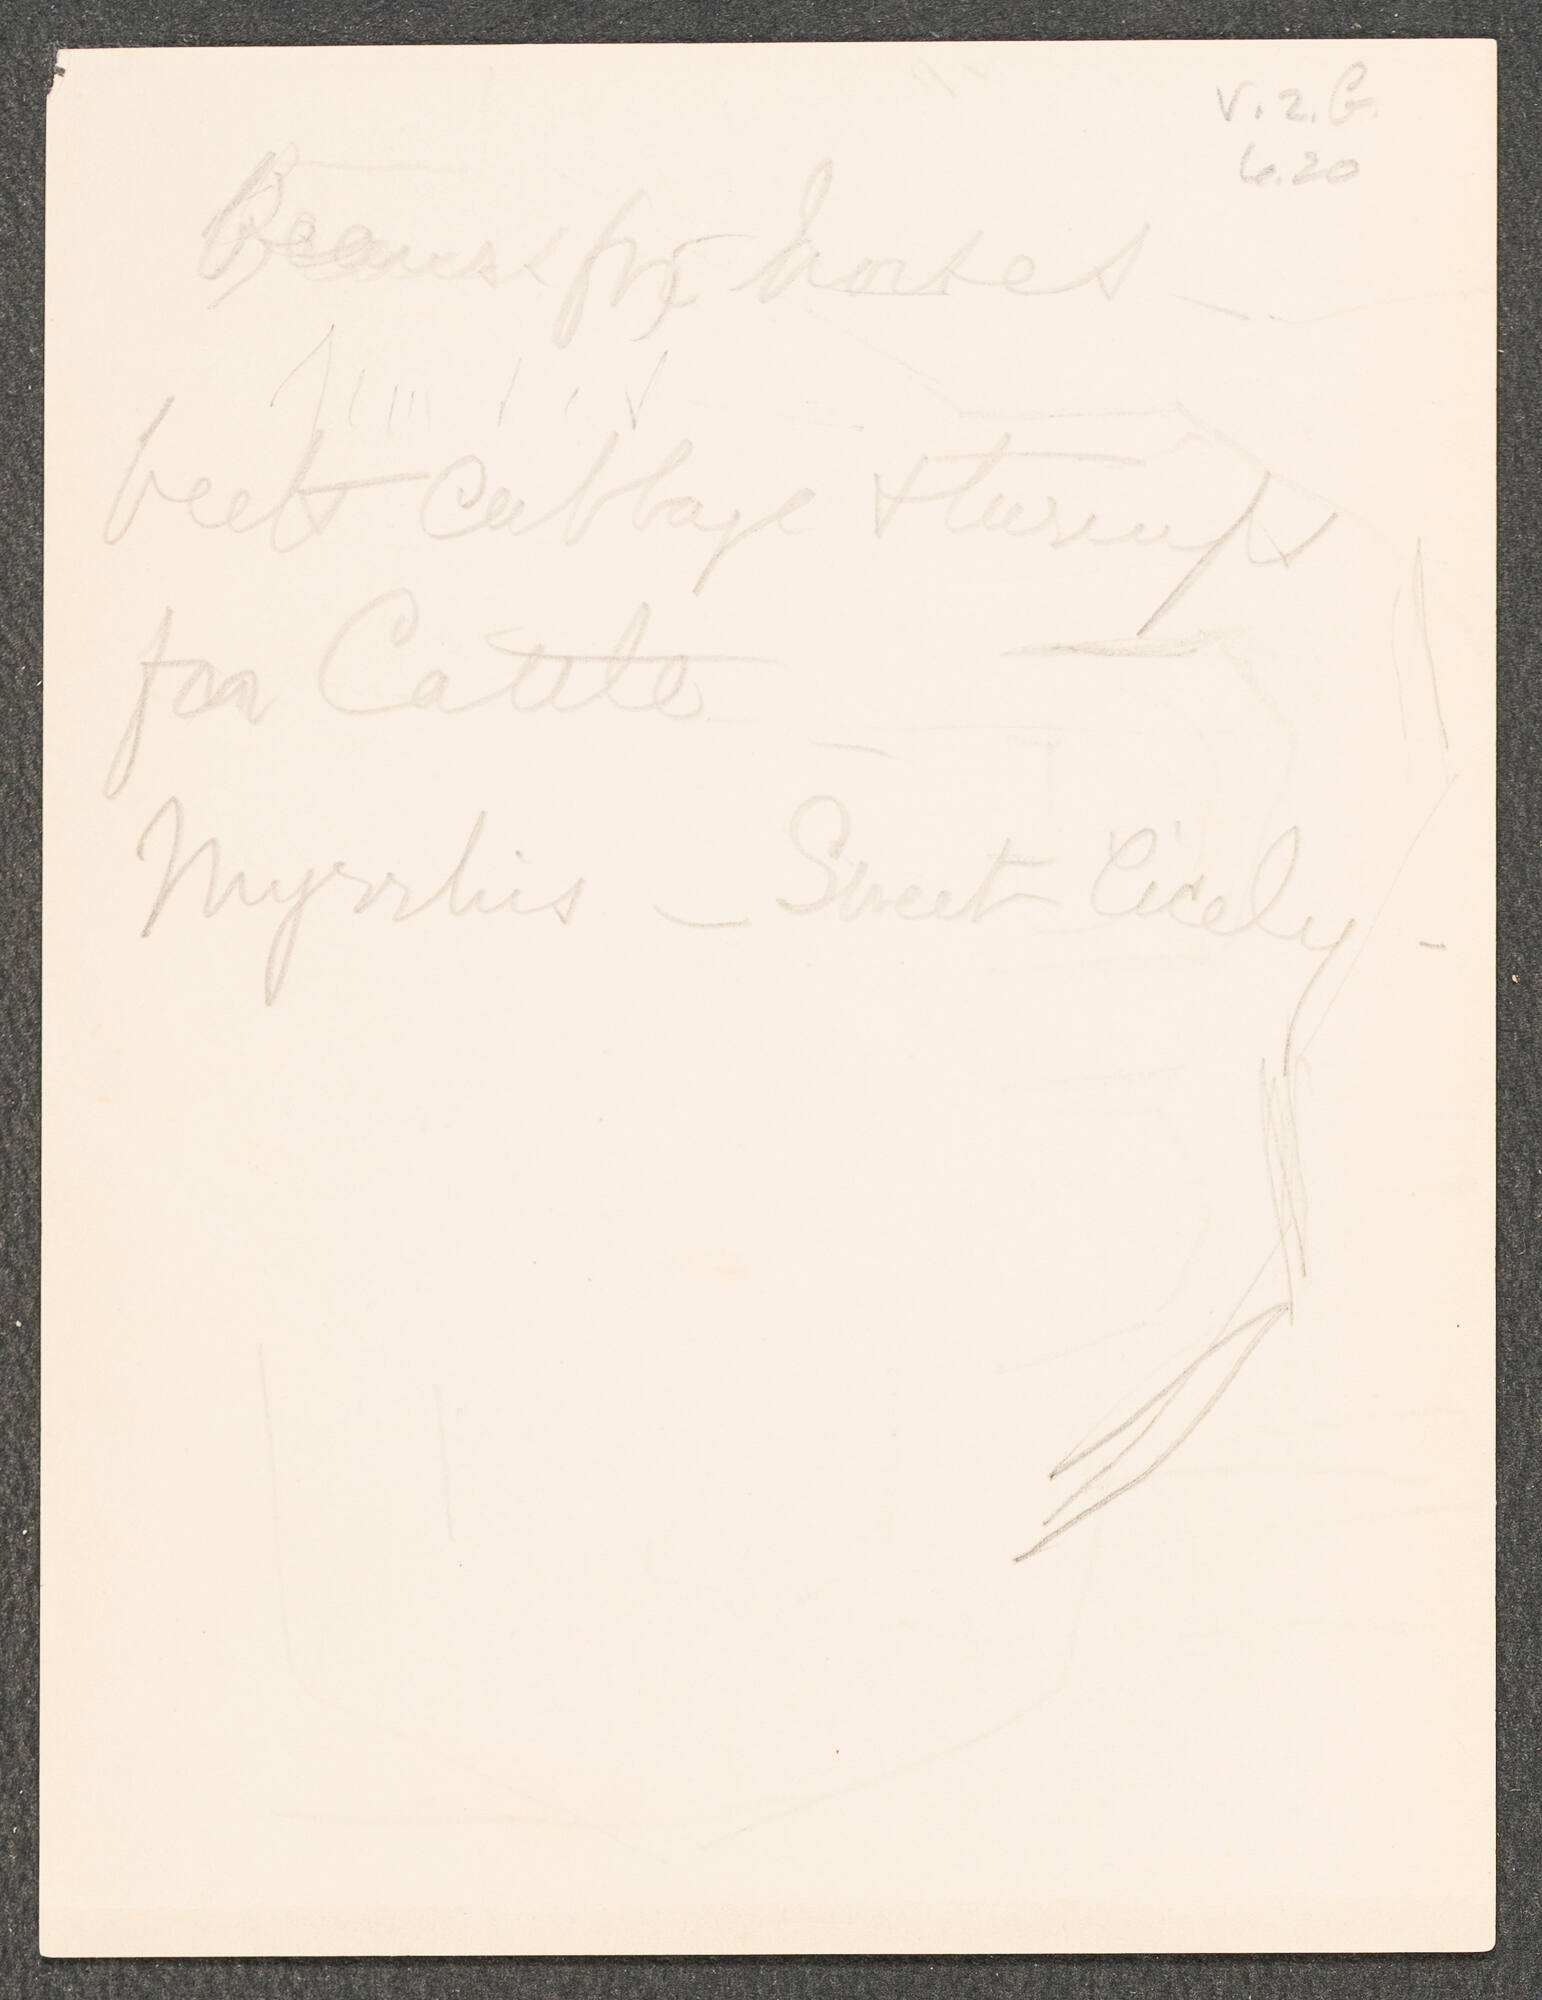 V.2.G.
6.20
Beans for horses –
beets cabbage & turnips
for Cattle
Myrrhis – Sweet Cicely –